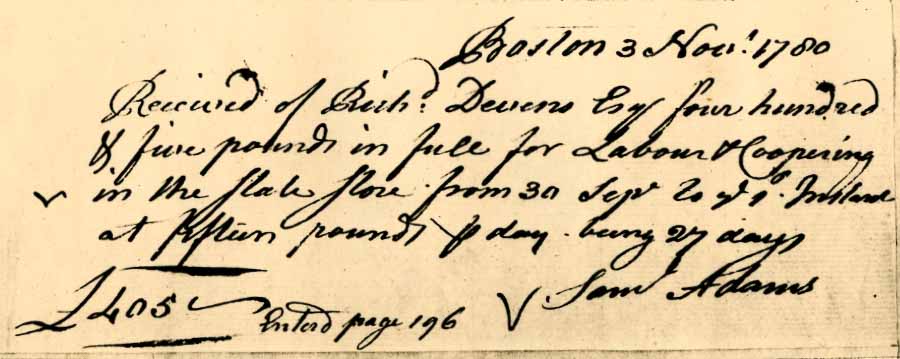 Boston 3 Novr. 1780
Received of Richd. Devens Esqr four hundred
& five pounds in full for Labour & Coopering
in the State Store from 30 Sepr to ye 1st. Instant
at fifteen pounds ⅌ day being 27 days
Saml Adams
£405
Enterd page 196